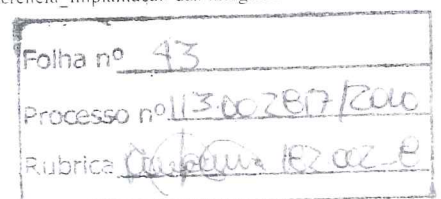 Folha nº 43
Processo nº 113.002817/2010
Rubrica 182 002-8